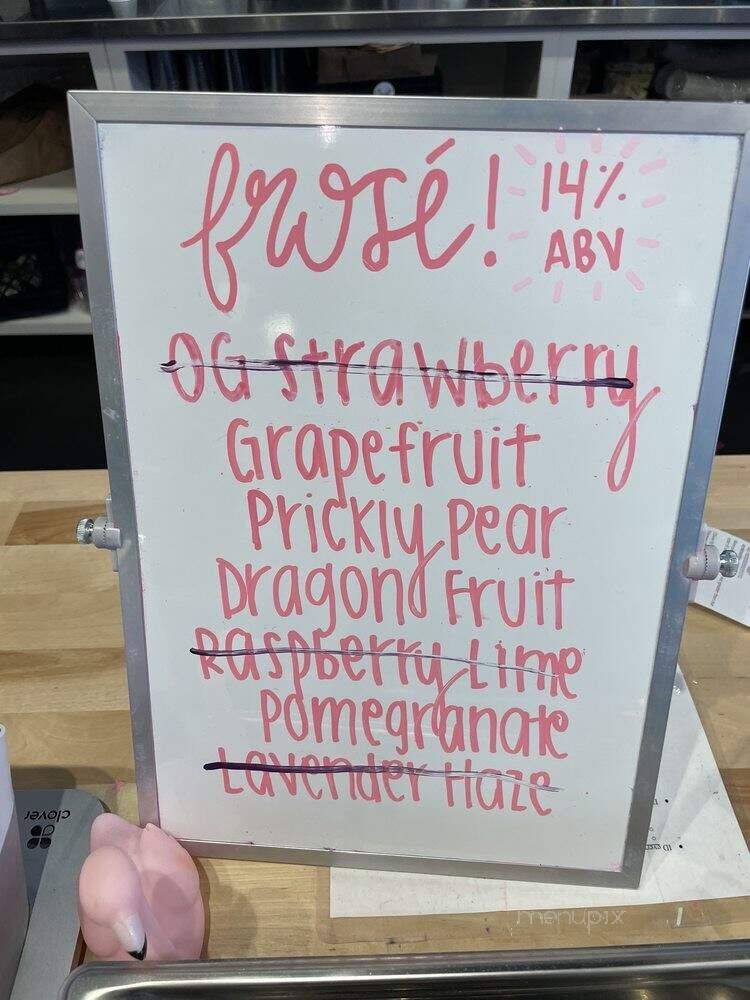 frosé! 14% ABV
OG Strawberry
Grapefruit
Prickly Pear
Dragon Fruit
Raspberry Lime
Pomegranate
Lavender Haze
clover
menupix